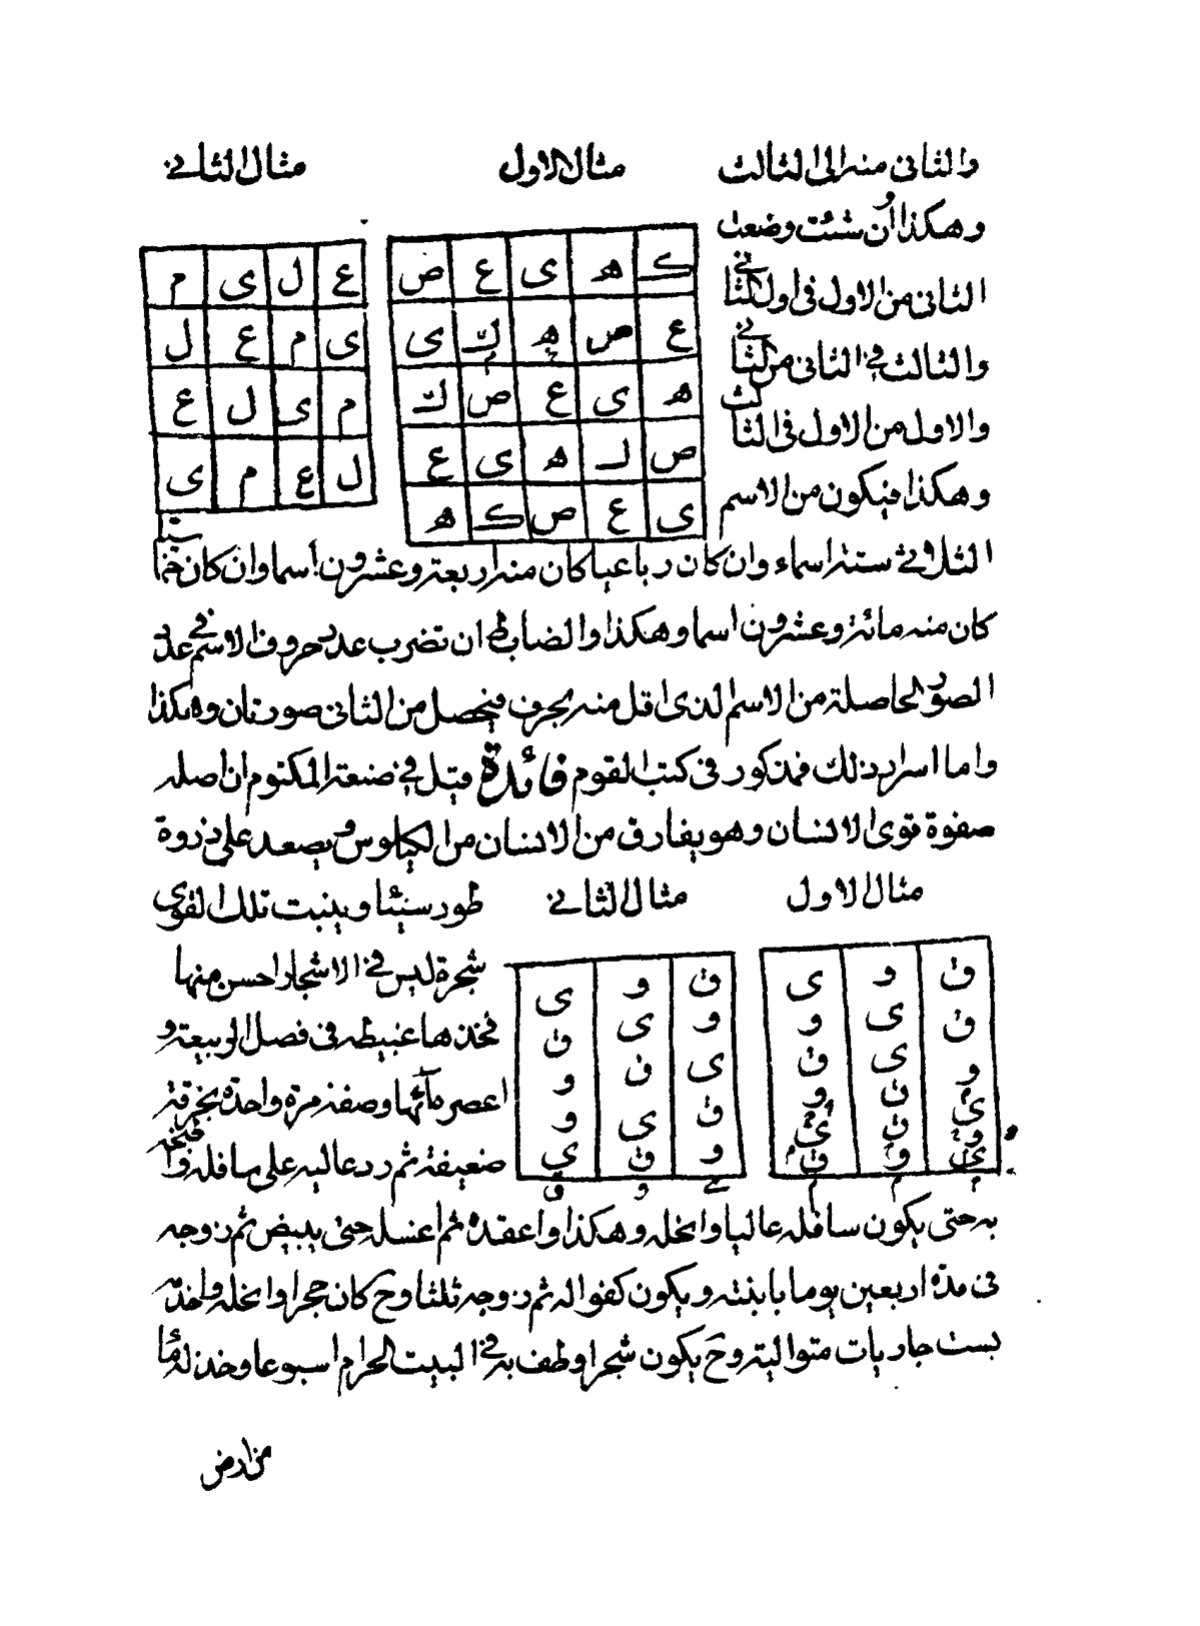 والثانى منه الى الثالث
مثال الاول
مثال الثانى
وهكذا وان شئت وضعت
الثانى من الاول فى اول الثانى
والثالث فى الثانى من الثانى
والاول من الاول فى الثالث
وهكذا فيكون من الاسم
ك ه ى ع ص
ع ص ه ك ى
ه ى ع ص ك
ص ك ه ى ع
ى ع ص ك ه
ع ل ى م
ى م ع ل
م ى ل ع
ل ع م ى
الثلاثى ستة اسماء وان كان رباعيا كان منه اربعة وعشرون اسما وان كان خماسيا
كان منه مائة وعشرون اسما وهكذا والضابط ان تضرب عدد حروف الاسم فى عدد
الصور الحاصلة من الاسم الذى اقل منه بحرف فيحصل من الثانى صورتان وهكذا
واما اسرار ذلك فمذكور فى كتب القوم فائدة قيل فى صنعة المكتوم ان اصله
صفوة قوى الانسان وهو يفارق من الانسان من الكيلوس ويصعد على ذروة
مثال الاول
مثال الثانى
طور سيناء وينبت تلك القوى
شجرة ليس فى الاشجار احسن منها
فخذها غبيطه فى فصل الربيعة و
اعصر مائها وصفه مرة واحدة بخرقة
ضعيفة ثم رد عاليه على سافله
ق و ى
ق ى و
و ى ق
ى ق و
و ق ى
ى و ق
ق و ى
و ى ق
ى ق و
ق ى و
و ق ى
ى و ق
به حتى يكون سافله عاليا وانخله وهكذا واعقده ثم اغسله حتى يبيض ثم زوجه
فى مدة اربعين يوما بابنته ويكون كفوا له ثم زوجه ثلثا وح كان حجرا وانخله واخدمه
بست جاريات متوالية وح يكون شجرا وطف به فى البيت الحرام اسبوعا وخذ له ماء
من ارض